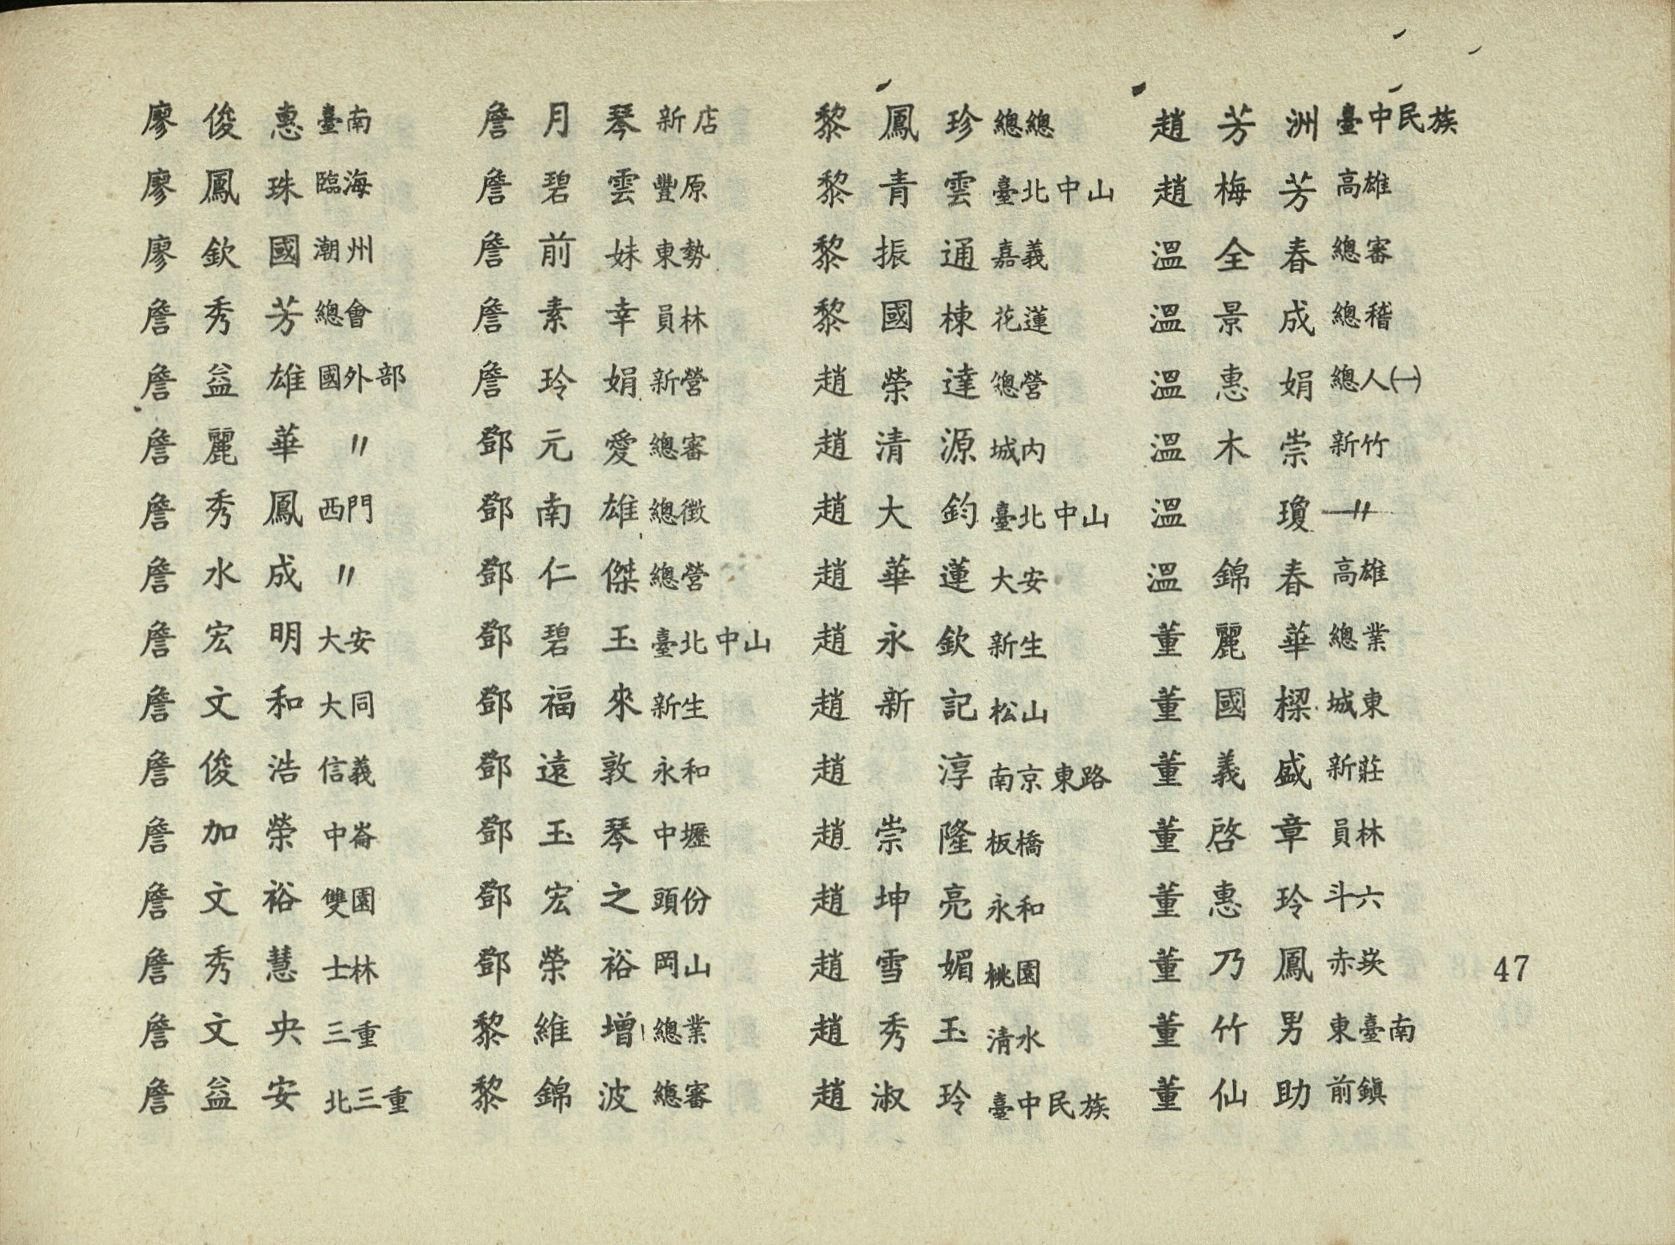 廖俊惠 臺南
廖鳳珠 臨海
廖欽國 潮州
詹秀芳 總會
詹益雄 國外部
詹麗華 〃
詹秀鳳 西門
詹水成 〃
詹宏明 大安
詹文和 大同
詹俊浩 信義
詹加榮 中崙
詹文裕 雙園
詹秀慧 士林
詹文央 三重
詹益安 北三重
詹月琴 新店
詹碧雲 豐原
詹前妹 東勢
詹素幸 員林
詹玲娟 新營
鄧元愛 總審
鄧南雄 總徵
鄧仁傑 總營
鄧碧玉 臺北中山
鄧福來 新生
鄧遠敦 永和
鄧玉琴 中壢
鄧宏之 頭份
鄧榮裕 岡山
黎維增 總業
黎錦波 總審
黎鳳珍 總總
黎青雲 臺北中山
黎振通 嘉義
黎國棟 花蓮
趙榮達 總營
趙清源 城內
趙大鈞 臺北中山
趙華蓮 大安
趙永欽 新生
趙新記 松山
趙淳 南京東路
趙崇隆 板橋
趙坤亮 永和
趙雪媚 桃園
趙秀玉 清水
趙淑玲 臺中民族
趙芳洲 臺中民族
趙梅芳 高雄
溫全春 總審
溫景成 總稽
溫惠娟 總人㈠
溫木崇 新竹
溫瓊 〃
溫錦春 高雄
董麗華 總業
董國樑 城東
董義盛 新莊
董啓章 員林
董惠玲 斗六
董乃鳳 赤崁
董竹男 東臺南
董仙助 前鎮
47